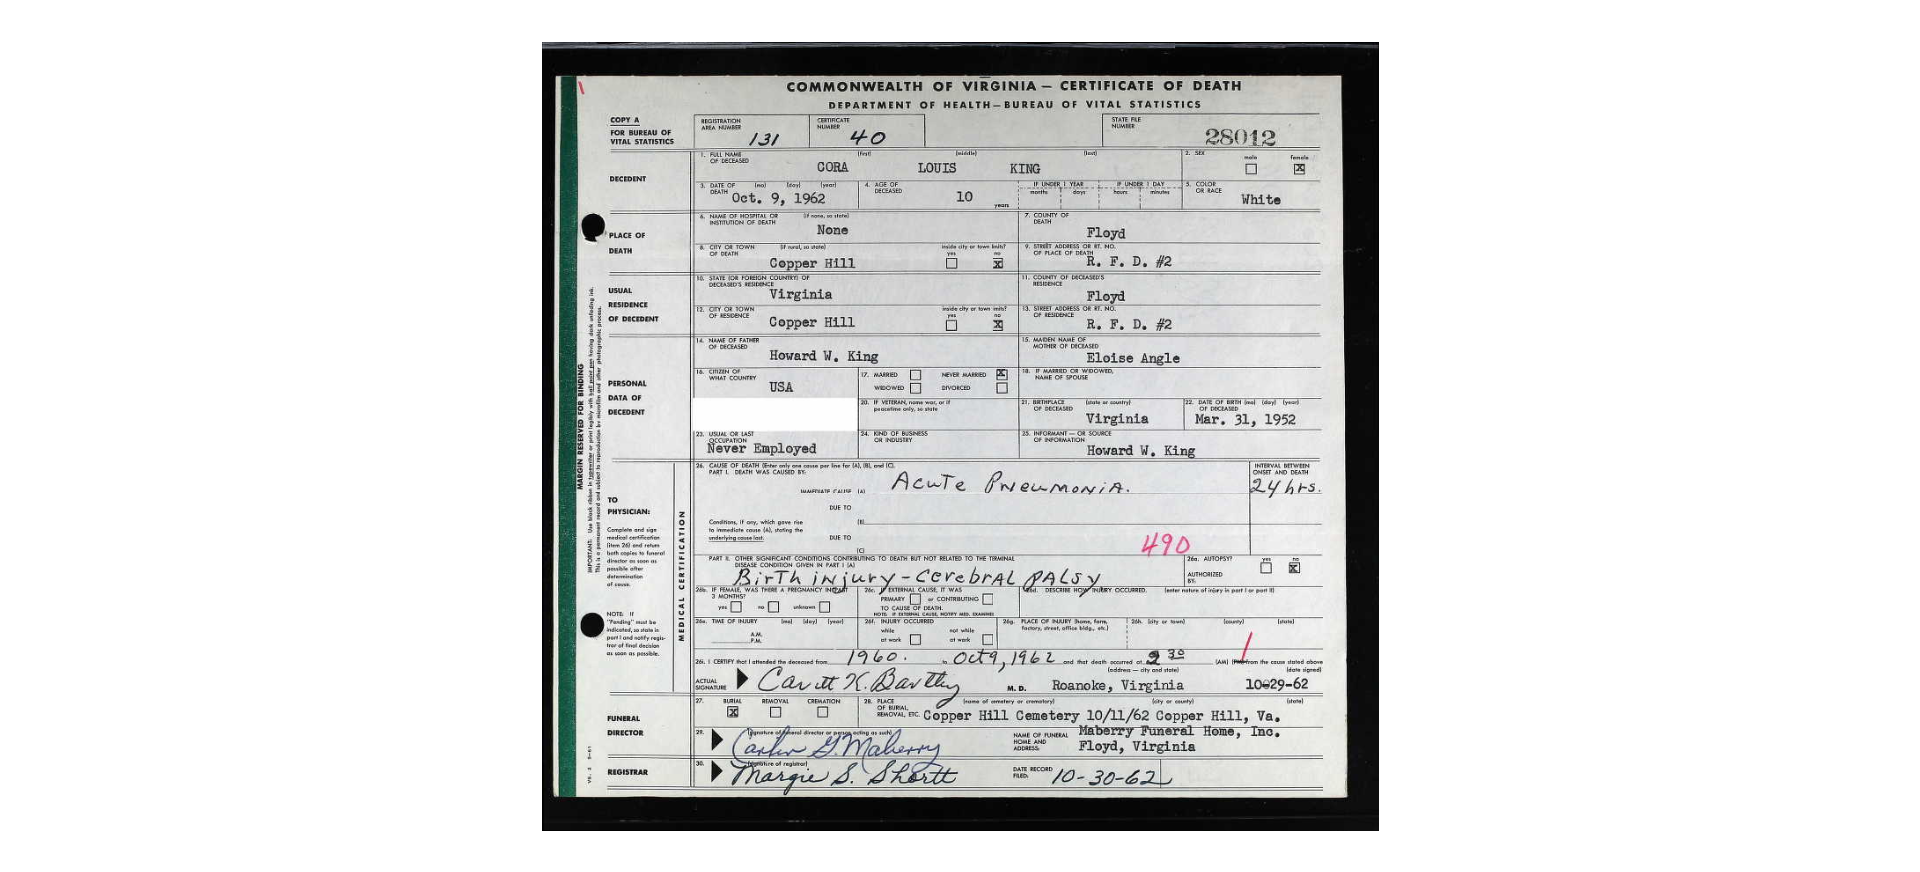 COMMONWEALTH OF VIRGINIA — CERTIFICATE OF DEATH
DEPARTMENT OF HEALTH—BUREAU OF VITAL STATISTICS
COPY A
FOR BUREAU OF VITAL STATISTICS
REGISTRATION AREA NUMBER 131
CERTIFICATE NUMBER 40
STATE FILE NUMBER 28012
DECEDENT
1. FULL NAME OF DECEASED (first) (middle) (last)
CORA LOUIS KING
2. SEX male female X
3. DATE OF DEATH (mo) (day) (year) Oct. 9, 1962
4. AGE OF DECEASED 10 years
IF UNDER 1 YEAR months days
IF UNDER 1 DAY hours minutes
5. COLOR OR RACE White
PLACE OF DEATH
6. NAME OF HOSPITAL OR INSTITUTION OF DEATH (if none, so state) None
7. COUNTY OF DEATH Floyd
8. CITY OR TOWN OF DEATH (if rural, so state) Copper Hill
inside city or town limits? yes no X
9. STREET ADDRESS OR RT. NO. OF PLACE OF DEATH R. F. D. #2
USUAL RESIDENCE OF DECEDENT
10. STATE (OR FOREIGN COUNTRY) OF DECEASED'S RESIDENCE Virginia
11. COUNTY OF DECEASED'S RESIDENCE Floyd
12. CITY OR TOWN OF RESIDENCE Copper Hill
inside city or town limits? yes no X
13. STREET ADDRESS OR RT. NO. OF RESIDENCE R. F. D. #2
PERSONAL DATA OF DECEDENT
14. NAME OF FATHER OF DECEASED Howard W. King
15. MAIDEN NAME OF MOTHER OF DECEASED Eloise Angle
16. CITIZEN OF WHAT COUNTRY USA
17. MARRIED NEVER MARRIED X
WIDOWED DIVORCED
18. IF MARRIED OR WIDOWED, NAME OF SPOUSE
20. IF VETERAN, name war, or if peacetime only, so state
21. BIRTHPLACE OF DECEASED (state or country) Virginia
22. DATE OF BIRTH (mo) (day) (year) OF DECEASED Mar. 31, 1952
23. USUAL OR LAST OCCUPATION Never Employed
24. KIND OF BUSINESS OR INDUSTRY
25. INFORMANT — OR SOURCE OF INFORMATION Howard W. King
MARGIN RESERVED FOR BINDING
TO PHYSICIAN:
Complete and sign medical certification (item 26) and return both copies to funeral director as soon as possible after determination of cause.
NOTE: If "Pending" must be indicated, so state in part I and notify registrar of final decision as soon as possible.
MEDICAL CERTIFICATION
26. CAUSE OF DEATH (Enter only one cause per line for (A), (B), and (C).
PART I. DEATH WAS CAUSED BY:
INTERVAL BETWEEN ONSET AND DEATH
IMMEDIATE CAUSE (A) Acute Pneumonia. 24 hrs.
DUE TO
Conditions, if any, which gave rise to immediate cause (A), stating the underlying cause last.
(B)
DUE TO
(C)
490
PART II. OTHER SIGNIFICANT CONDITIONS CONTRIBUTING TO DEATH BUT NOT RELATED TO THE TERMINAL DISEASE CONDITION GIVEN IN PART I (A)
Birth injury - Cerebral Palsy
26a. AUTOPSY? yes no X
AUTHORIZED BY:
26b. IF FEMALE, WAS THERE A PREGNANCY IN PAST 3 MONTHS? yes no unknown
26c. IF EXTERNAL CAUSE, IT WAS PRIMARY or CONTRIBUTING TO CAUSE OF DEATH.
NOTE: IF EXTERNAL CAUSE, NOTIFY MED. EXAMINER
26d. DESCRIBE HOW INJURY OCCURRED. (enter nature of injury in part I or part II)
26e. TIME OF INJURY (mo) (day) (year) A.M. P.M.
26f. INJURY OCCURRED while at work not while at work
26g. PLACE OF INJURY (home, farm, factory, street, office bldg., etc.)
26h. (city or town) (county) (state)
26i. I CERTIFY that I attended the deceased from 1960. to Oct 9, 1962 and that death occurred at 2 30 (AM) from the cause stated above
(address — city and state) (date signed)
ACTUAL SIGNATURE M. D. Roanoke, Virginia 10-29-62
FUNERAL DIRECTOR
27. BURIAL X REMOVAL CREMATION
28. PLACE OF BURIAL, REMOVAL, ETC. (name of cemetery or crematory) (city or county) (state)
Copper Hill Cemetery 10/11/62 Copper Hill, Va.
29. (signature of funeral director or person acting as such)
G. Maberry
NAME OF FUNERAL HOME AND ADDRESS: Maberry Funeral Home, Inc.
Floyd, Virginia
REGISTRAR
30. (signature of registrar) Margie S. Shortt
DATE RECORD FILED: 10-30-62